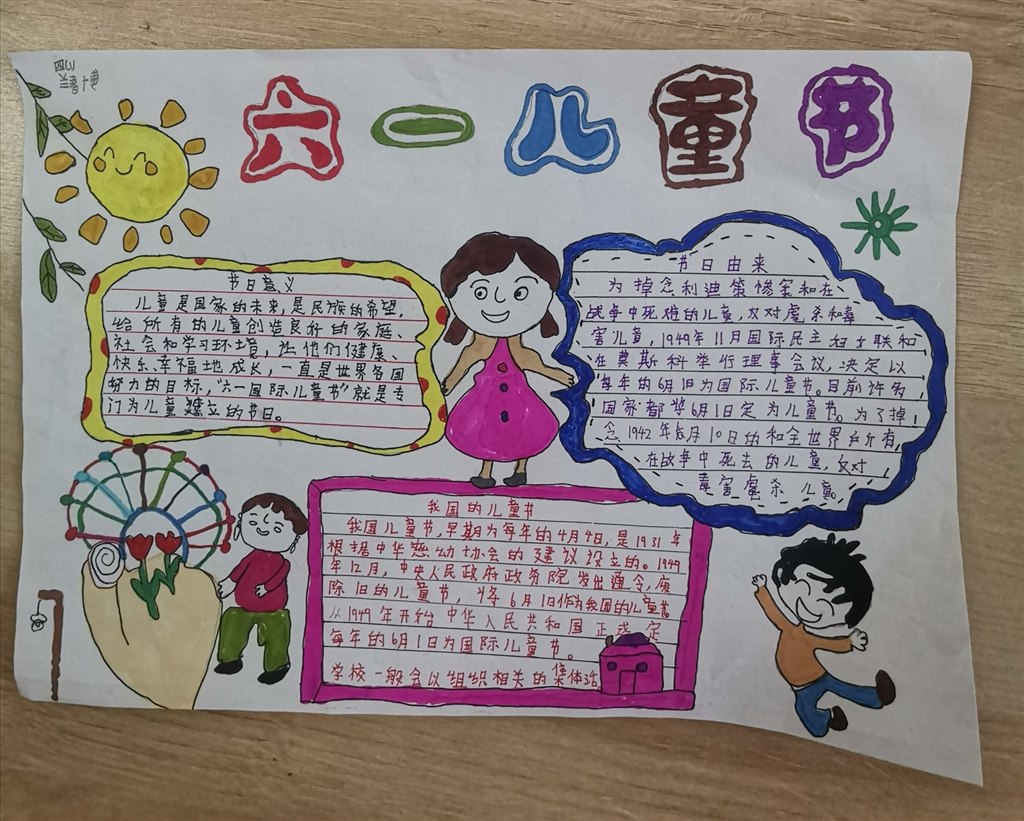 四(2)
六一儿童节
节日意义
儿童是国家的未来,是民族的希望,
给所有的儿童创造良好的家庭、
社会和学习环境,让他们健康、
快乐、幸福地成长,一直是世界各国
努力的目标,“六一国际儿童节”就是专
门为儿童建立的节日。
节日由来
为悼念利迪策惨案和在
战争中死难的儿童,反对虐杀和毒
害儿童,1949年11月国际民主妇女联和
在莫斯科举行理事会议,决定以
每年的6月1日为国际儿童节。目前许多
国家都将6月1日定为儿童节。为了悼
念1942年6月10日的和全世界所有
在战争中死去的儿童,反对
毒害虐杀儿童。
我国的儿童节
我国儿童节,早期为每年的4月4日,是1931年
根据中华慈幼协会的建议设立的。1949
年12月,中央人民政府政务院发出通令,废
除旧的儿童节,将6月1日作为我国的儿童节
从1949年开始中华人民共和国正式定
每年的6月1日为国际儿童节。
学校一般会以组织相关的集体活